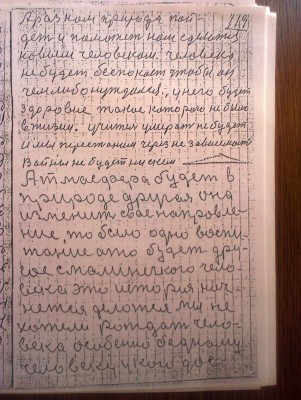 119
А раз нам природа пой-
дет и поможет нам сделатся
новым человеком. человека
небудет беспокоит чтобы он
чемлибо нуждался, у него будет
здоровие такое которого не было
в жизни. учится умират не будет
и мы перестанем через не
Войны не будет ни с кем
Атмасфера будет в
природе другая она
изменит свое направле-
ние, то было одно воспи-
тание ато будет дру-
гое с маленкого чело-
века это история нач-
нется делотся мы не
хотели рождат чело-
века особенно бедному
человеку у кого дос